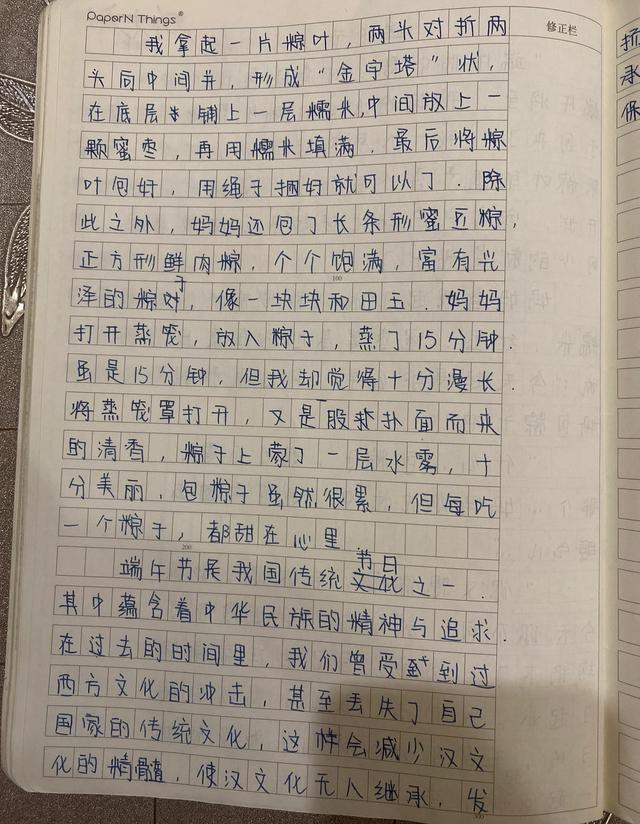 PaperN Things®
修正栏
我拿起一片粽叶，两头对折两
头向中间并，形成“金字塔”状，
在底层铺上一层糯米，中间放上一
颗蜜枣，再用糯米填满，最后将粽
叶包好，用绳子捆好就可以了．除
此之外，妈妈还包了长条形蜜豆粽，
正方形鲜肉粽，个个饱满，富有光
100
泽的粽子，像一块块和田玉．妈妈
打开蒸笼，放入粽子，蒸了15分钟．
虽是15分钟，但我却觉得十分漫长．
将蒸笼罩打开，又是一股扑面而来
的清香，粽子上蒙了一层水雾，十
分美丽．包粽子虽然很累，但每吃
一个粽子，都甜在心里
200
端午节是我国传统节日之一．
其中蕴含着中华民族的精神与追求．
在过去的时间里，我们曾受到过
西方文化的冲击，甚至丢失了自己
国家的传统文化，这样会减少汉文
化的精髓，使汉文化无人继承，发
300
折
承
保